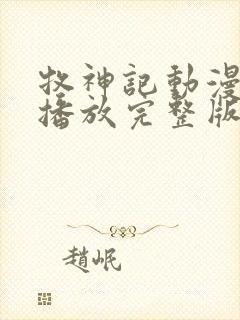 牧神記動漫
播放完整版
趙岷